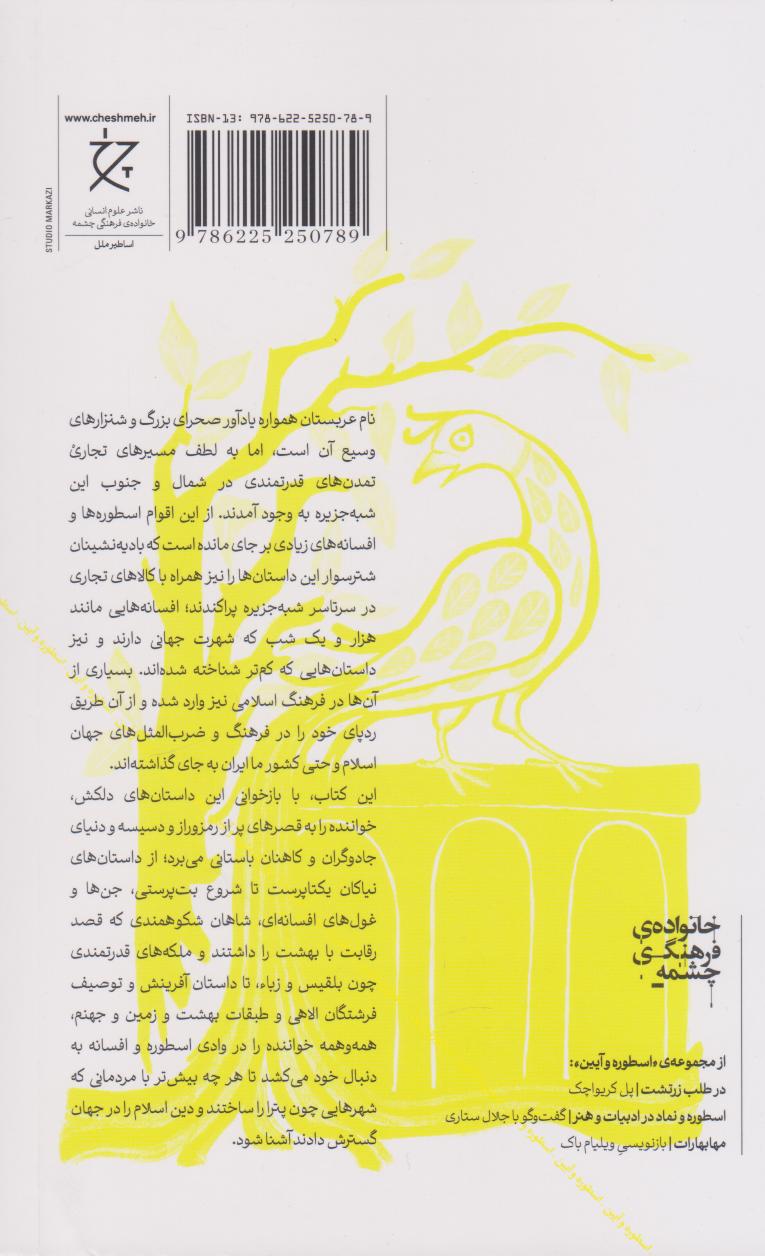 www.cheshmeh.ir
ISBN-13: 978-622-5250-78-9
9 786225 250789
STUDIO MARKAZI
ناشر علوم انسانی
خانواده‌ی فرهنگی چشمه
اساطیر ملل
نام عربستان همواره یادآور صحرای بزرگ و شنزارهای
وسیع آن است، اما به لطف مسیرهای تجاریْ
تمدن‌های قدرتمندی در شمال و جنوب این
شبه‌جزیره به وجود آمدند. از این اقوام اسطوره‌ها و
افسانه‌های زیادی بر جای مانده است که بادیه‌نشینان
شترسوار این داستان‌ها را نیز همراه با کالاهای تجاری
در سرتاسر شبه‌جزیره پراکندند؛ افسانه‌هایی مانند
هزار و یک شب که شهرت جهانی دارند و نیز
داستان‌هایی که کم‌تر شناخته شده‌اند. بسیاری از
آن‌ها در فرهنگ اسلامی نیز وارد شده و از آن طریق
ردپای خود را در فرهنگ و ضرب‌المثل‌های جهان
اسلام و حتی کشور ما ایران به جای گذاشته‌اند.
این کتاب، با بازخوانی این داستان‌های دلکش،
خواننده را به قصرهای پر از رمزوراز و دسیسه و دنیای
جادوگران و کاهنان باستانی می‌برد؛ از داستان‌های
نیاکان یکتاپرست تا شروع بت‌پرستی، جن‌ها و
غول‌های افسانه‌ای، شاهان شکوهمندی که قصد
رقابت با بهشت را داشتند و ملکه‌های قدرتمندی
چون بلقیس و زباء، تا داستان آفرینش و توصیف
فرشتگان الاهی و طبقات بهشت و زمین و جهنم،
همه‌وهمه خواننده را در وادی اسطوره و افسانه به
دنبال خود می‌کشد تا هر چه بیش‌تر با مردمانی که
شهرهایی چون پترا را ساختند و دین اسلام را در جهان
گسترش دادند آشنا شود.
خانواده‌ی
فرهنگی
چشمه
از مجموعه‌ی «اسطوره و آیین»:
در طلب زرتشت | پل کریواچک
اسطوره و نماد در ادبیات و هنر | گفت‌وگو با جلال ستاری
مهابهارات | بازنویسیِ ویلیام باک
اسطوره و آیین . اسطوره و آیین . اسطوره و آیین